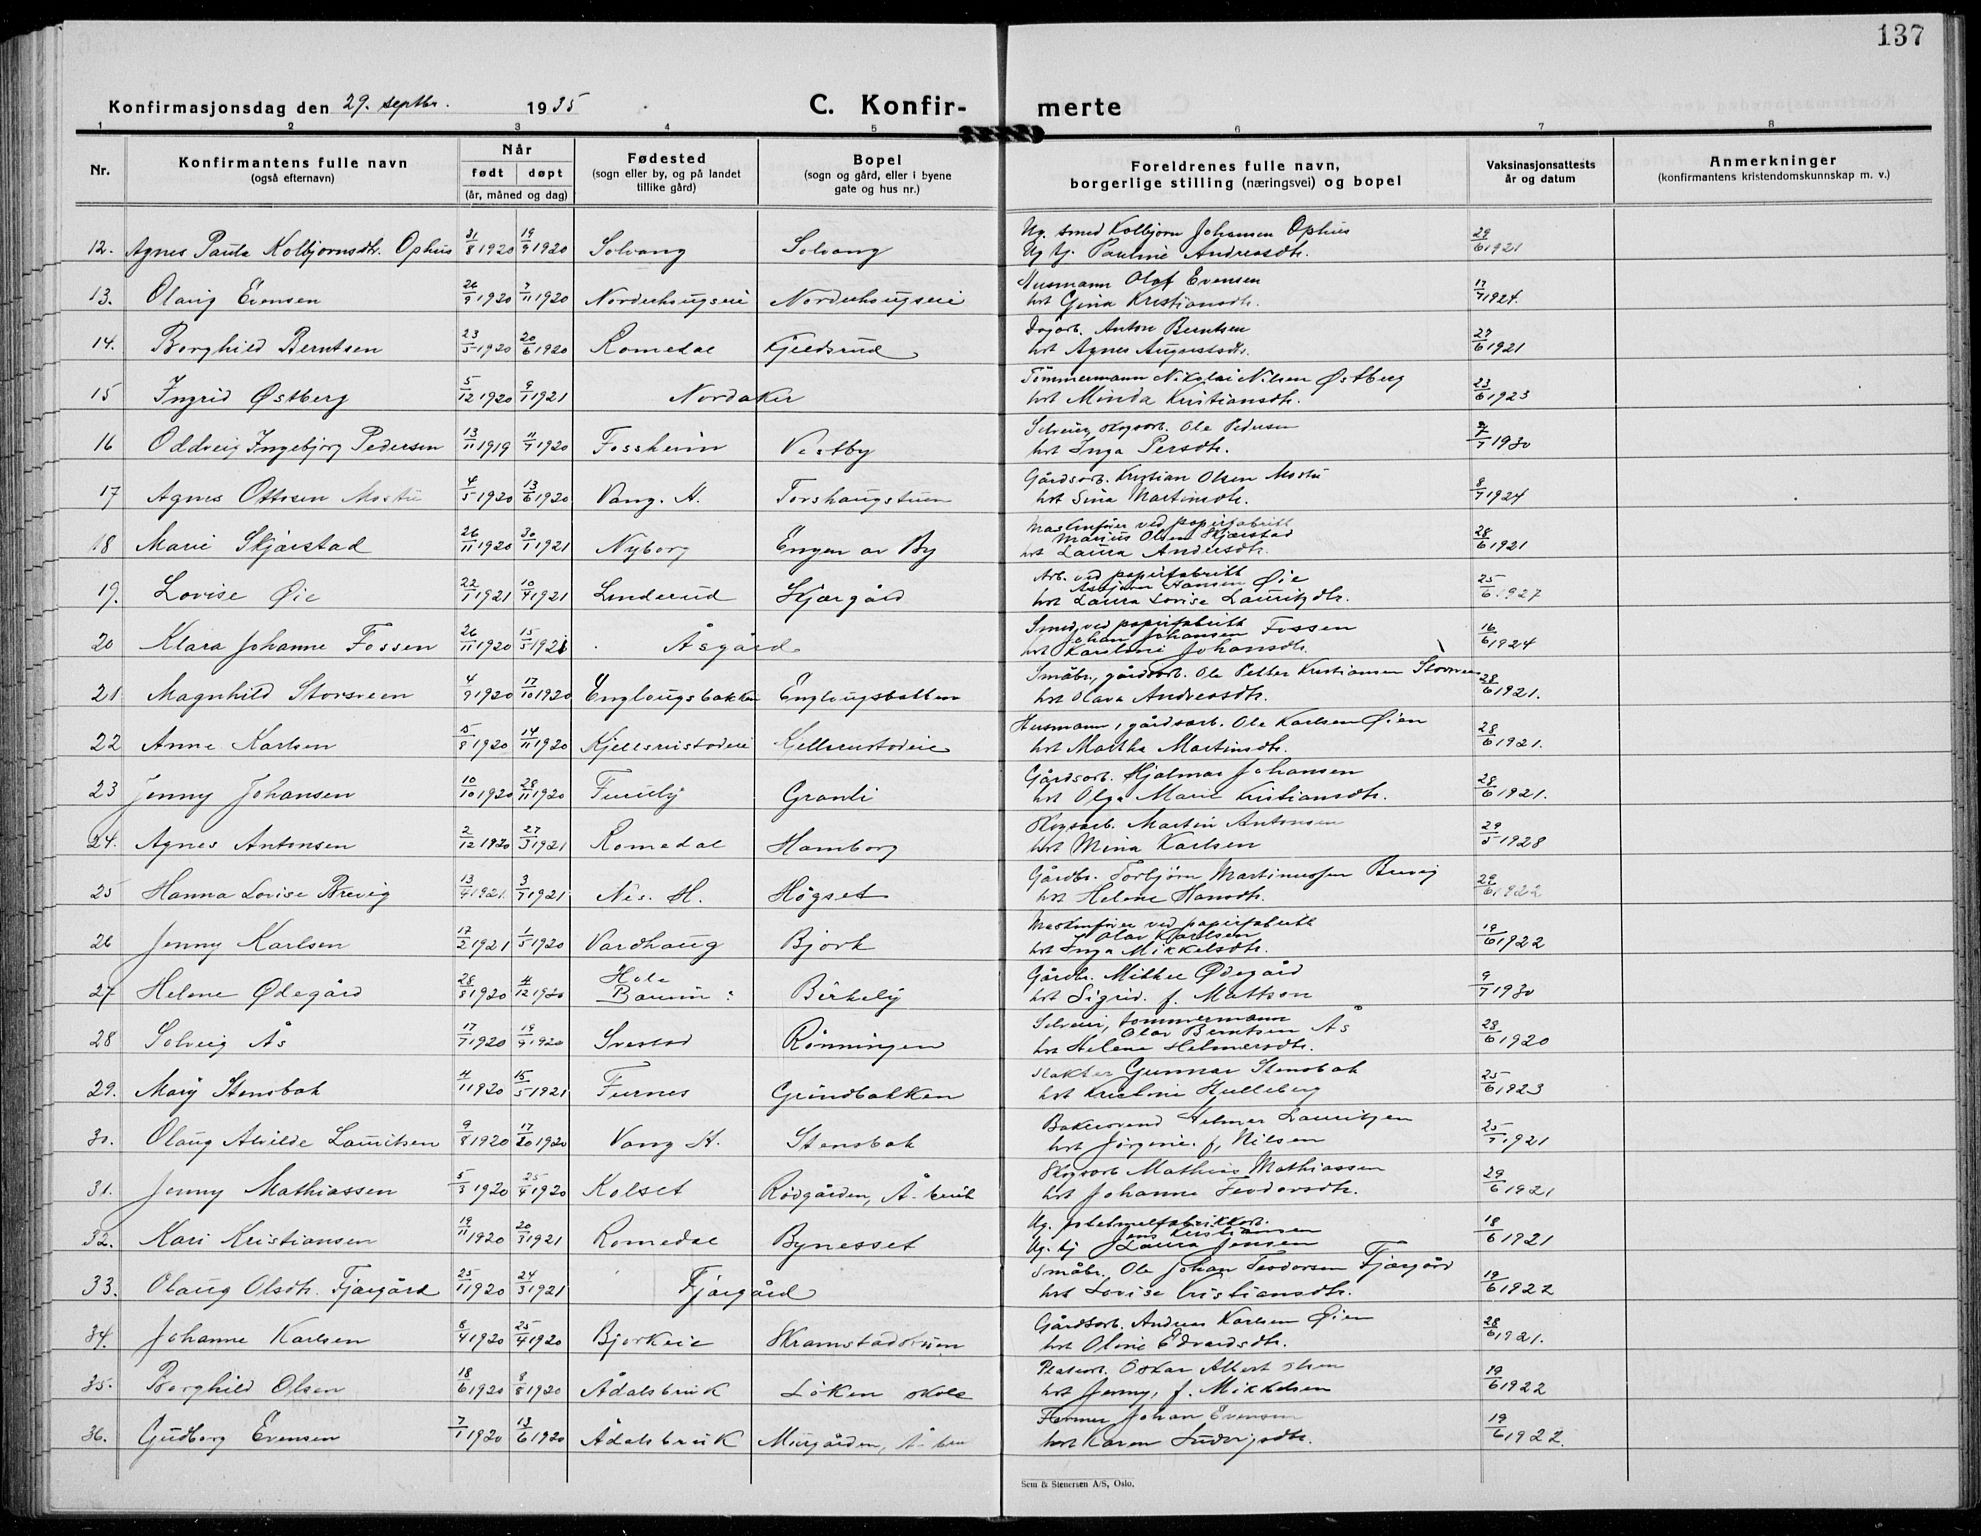 137
Konfirmasjonsdag den 29. septbr. 1935
C. Konfir- merte
1 2 3 4 5 6 7 8
Nr.
Konfirmantens fulle navn
(også efternavn)
Når
født døpt
(år, måned og dag)
Fødested
(sogn eller by, og på landet
tillike gård)
Bopel
(sogn og gård, eller i byene
gate og hus nr.)
Foreldrenes fulle navn,
borgerlige stilling (næringsvei) og bopel
Vaksinasjonsattests
år og datum
Anmerkninger
(konfirmantens kristendomskunnskap m. v.)
12. Agnes Paula Kolbjørnsdtr. Ophus 31/8 1920 19/9 1920 Solvang Solvang Ug. smed Kolbjørn Johansen Ophus
Ug tj. Pauline Andreasdtr. 29/6 1921
13. Olaug Evensen 26/9 1920 7/11 1920 Norderhougseie Norderhougseie Husmann Olaf Evensen
hst Gina Kristiansdtr. 17/7 1924.
14. Borghild Berntsen 23/5 1920 20/6 1920 Romedal Gjeldsrud Dagarb. Anton Berntsen
hst Agnes Augustsdtr. 27/6 1921
15 Ingrid Østberg 5/12 1920 9/1 1921 Nordaker Tømmermann Nikolai Nilsen Østberg
hst Minda Kristiansdtr. 23/6 1923
16 Oddveig Ingebjørg Pedersen 13/11 1919 11/7 1920 Fossheim Vestby Selveier, skogsarb. Ole Pedersen
hst Inga Persdtr. 9/7 1930
17 Agnes Ottesen Mostu 4/5 1920 13/6 1920 Vang. H. Torshaugstuen Gårdsarb. Kristian Olsen Mostu
hst Sina Martinsdtr. 8/7 1924
18 Marie Skjærstad 26/11 1920 30/1 1921 Nyborg Engen av By Maskinfører ved papirfabrikk
Marius Olsen Skjærstad
hst Laura Andersdtr. 28/6 1921
19. Lovise Øie 22/1 1921 10/4 1921 Linderud Skjærgård Arb. ved papirfabrikk
Asbjørn Hansen Øie
hst Laura Lovise Lauritzdtr. 25/6 1927
20 Klara Johanne Fossen 26/11 1920 15/5 1921 Åsgård Smed ved papirfabrikk
Johan Johansen Fossen
hst Karoline Johansdtr. 16/6 1924
21 Magnhild Storsveen 4/9 1920 17/10 1920 Englaugsbakken Englaugsbakken Småbr., gårdsarb. Ole Petter Kristiansen Storsveen
hst Olava Andreasdtr. 28/6 1921.
22 Anne Karlsen 5/8 1920 14/11 1920 Kjellsrustadeie Kjellsrustadeie Husmann, gårdsarb. Ole Karlsen Øien
hst Martha Martinsdtr. 28/6 1921.
23 Jenny Johansen 10/10 1920 28/11 1920 Furuly Granli Gårdsarb. Hjalmar Johansen
hst Olga Marie Kristiansdtr. 28/6 1921.
24. Agnes Antonsen 2/12 1920 27/3 1921 Romedal Hamborg Skogsarb. Martin Antonsen
hst Mina Karlsen 29/5 1928
25 Hanna Lovise Brevig 13/4 1921. 3/7 1921 Nes. H. Høgset Gårdbr. Torbjørn Martinussen Brevig
hst Helene Hansdtr. 29/6 1922
26 Jenny Karlsen 17/2 1921 1/5 1920 Vardhaug Bjørk Maskinfører ved papirfabrikk
Olav Karlsen
hst Inga Mikkelsdtr. 19/6 1922
27 Helene Ødegård 28/8 1920 4/12 1920 Hole
Bærum: Birkely Gårdbr. Mikkel Ødegård
hst Sigrid. f. Mattson 9/7 1930
28 Solveig Ås 17/7 1920 19/9 1920 Svestad Rønningen Selveier, tømmermann
Olav Berntsen Ås
hst Helene Helmersdtr. 28/6 1920
29. Mary Stensbak 4/11 1920 15/5 1921 Furnes Grindbakken Slakter Gunnar Stensbak
hst Kristine Hulleberg 25/6 1923
30. Olaug Alvilde Lauritsen 9/8 1920 17/10 1920 Vang H. Stensbak Bakersvend Helmer Lauritzen
hst Jørgine. f. Nilsen 25/7 1921
31. Jenny Mathiassen 5/3 1920 25/4 1920 Kolset Rødgården, Å-bruk Skogsarb Mathias Mathiassen
hst Johanne Teodorsdtr. 29/6 1921
32. Kari Kristiansen 19/11 1920 20/3 1921 Romedal Bynesset Ug. potetmelfabrikkarb.
Jens Kristiansen
Ug. tj Laura Jensen 18/6 1921
33. Olaug Olsdtr. Fjærgård 25/11 1920 24/3 1921 Fjærgård Småbr. Ole Johan Teodorsen Fjærgård
hst Lovise Kristiansdtr. 19/6 1922
34. Johanne Karlsen 8/4 1920 25/4 1920 Bjørkeie Skramstadstuen Gårdsarb. Andreas Karlsen Øien
hst Oline Edvardsdtr. 28/6 1921.
35. Borghild Olsen 18/6 1920 8/8 1920 Ådalsbruk Løken skole Oskar Albert Olsen
hst Jenny, f. Mikkelsen 19/6 1922
36. Gudborg Evensen 7/1 1920 13/6 1920 Ådalsbruk Murgården, Å-bru Former Johan Evensen
hst Karen Ludvigsdtr. 19/6 1922.
Sem & Stenersen A/S, Oslo.